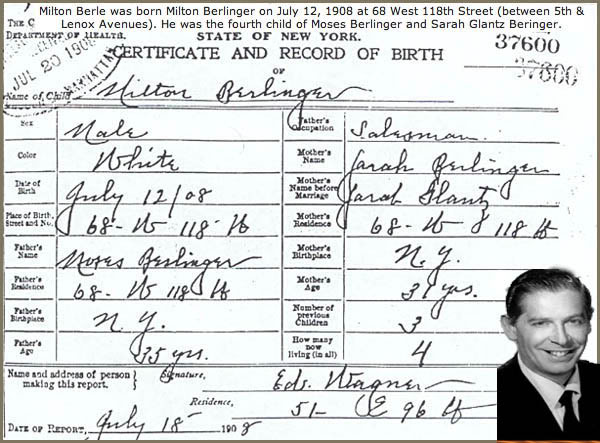 Milton Berle was born Milton Berlinger on July 12, 1908 at 68 West 118th Street (between 5th &
Lenox Avenues). He was the fourth child of Moses Berlinger and Sarah Glantz Beringer.
THE C
DEPARTMENT OF HEALTH. STATE OF NEW YORK. 37600
JUL 20 190 MANHATTAN CERTIFICATE AND RECORD OF BIRTH 37600
OF
Name of Child Milton Berlinger
Sex Male Father's Occupation Salesman
Color White Mother's Name Sarah Berlinger
Date of Birth July 12/08 Mother's Name before Marriage Sarah Glantz
Place of Birth, Street and No. 68- W 118 St Mother's Residence 68- W 118 St
Father's Name Moses Berlinger Mother's Birthplace N.Y.
Father's Residence 68- W 118 St Mother's Age 31 yrs.
Father's Birthplace N.Y. Number of previous Children 3
Father's Age 35 yrs. How many now living (in all) 4
Name and address of person making this report. Signature, Eds. Wagner
Residence, 51- E 96 St
DATE OF REPORT, July 18 1908